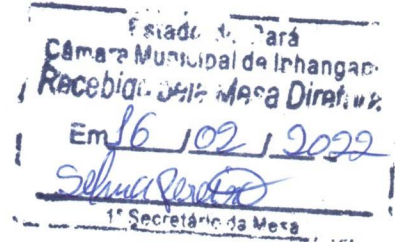 Estado do Pará
Câmara Municipal de Inhangapi
Recebido pela Mesa Diretiva
Em 16 / 02 / 2022
Selma Pereira
1º Secretário da Mesa